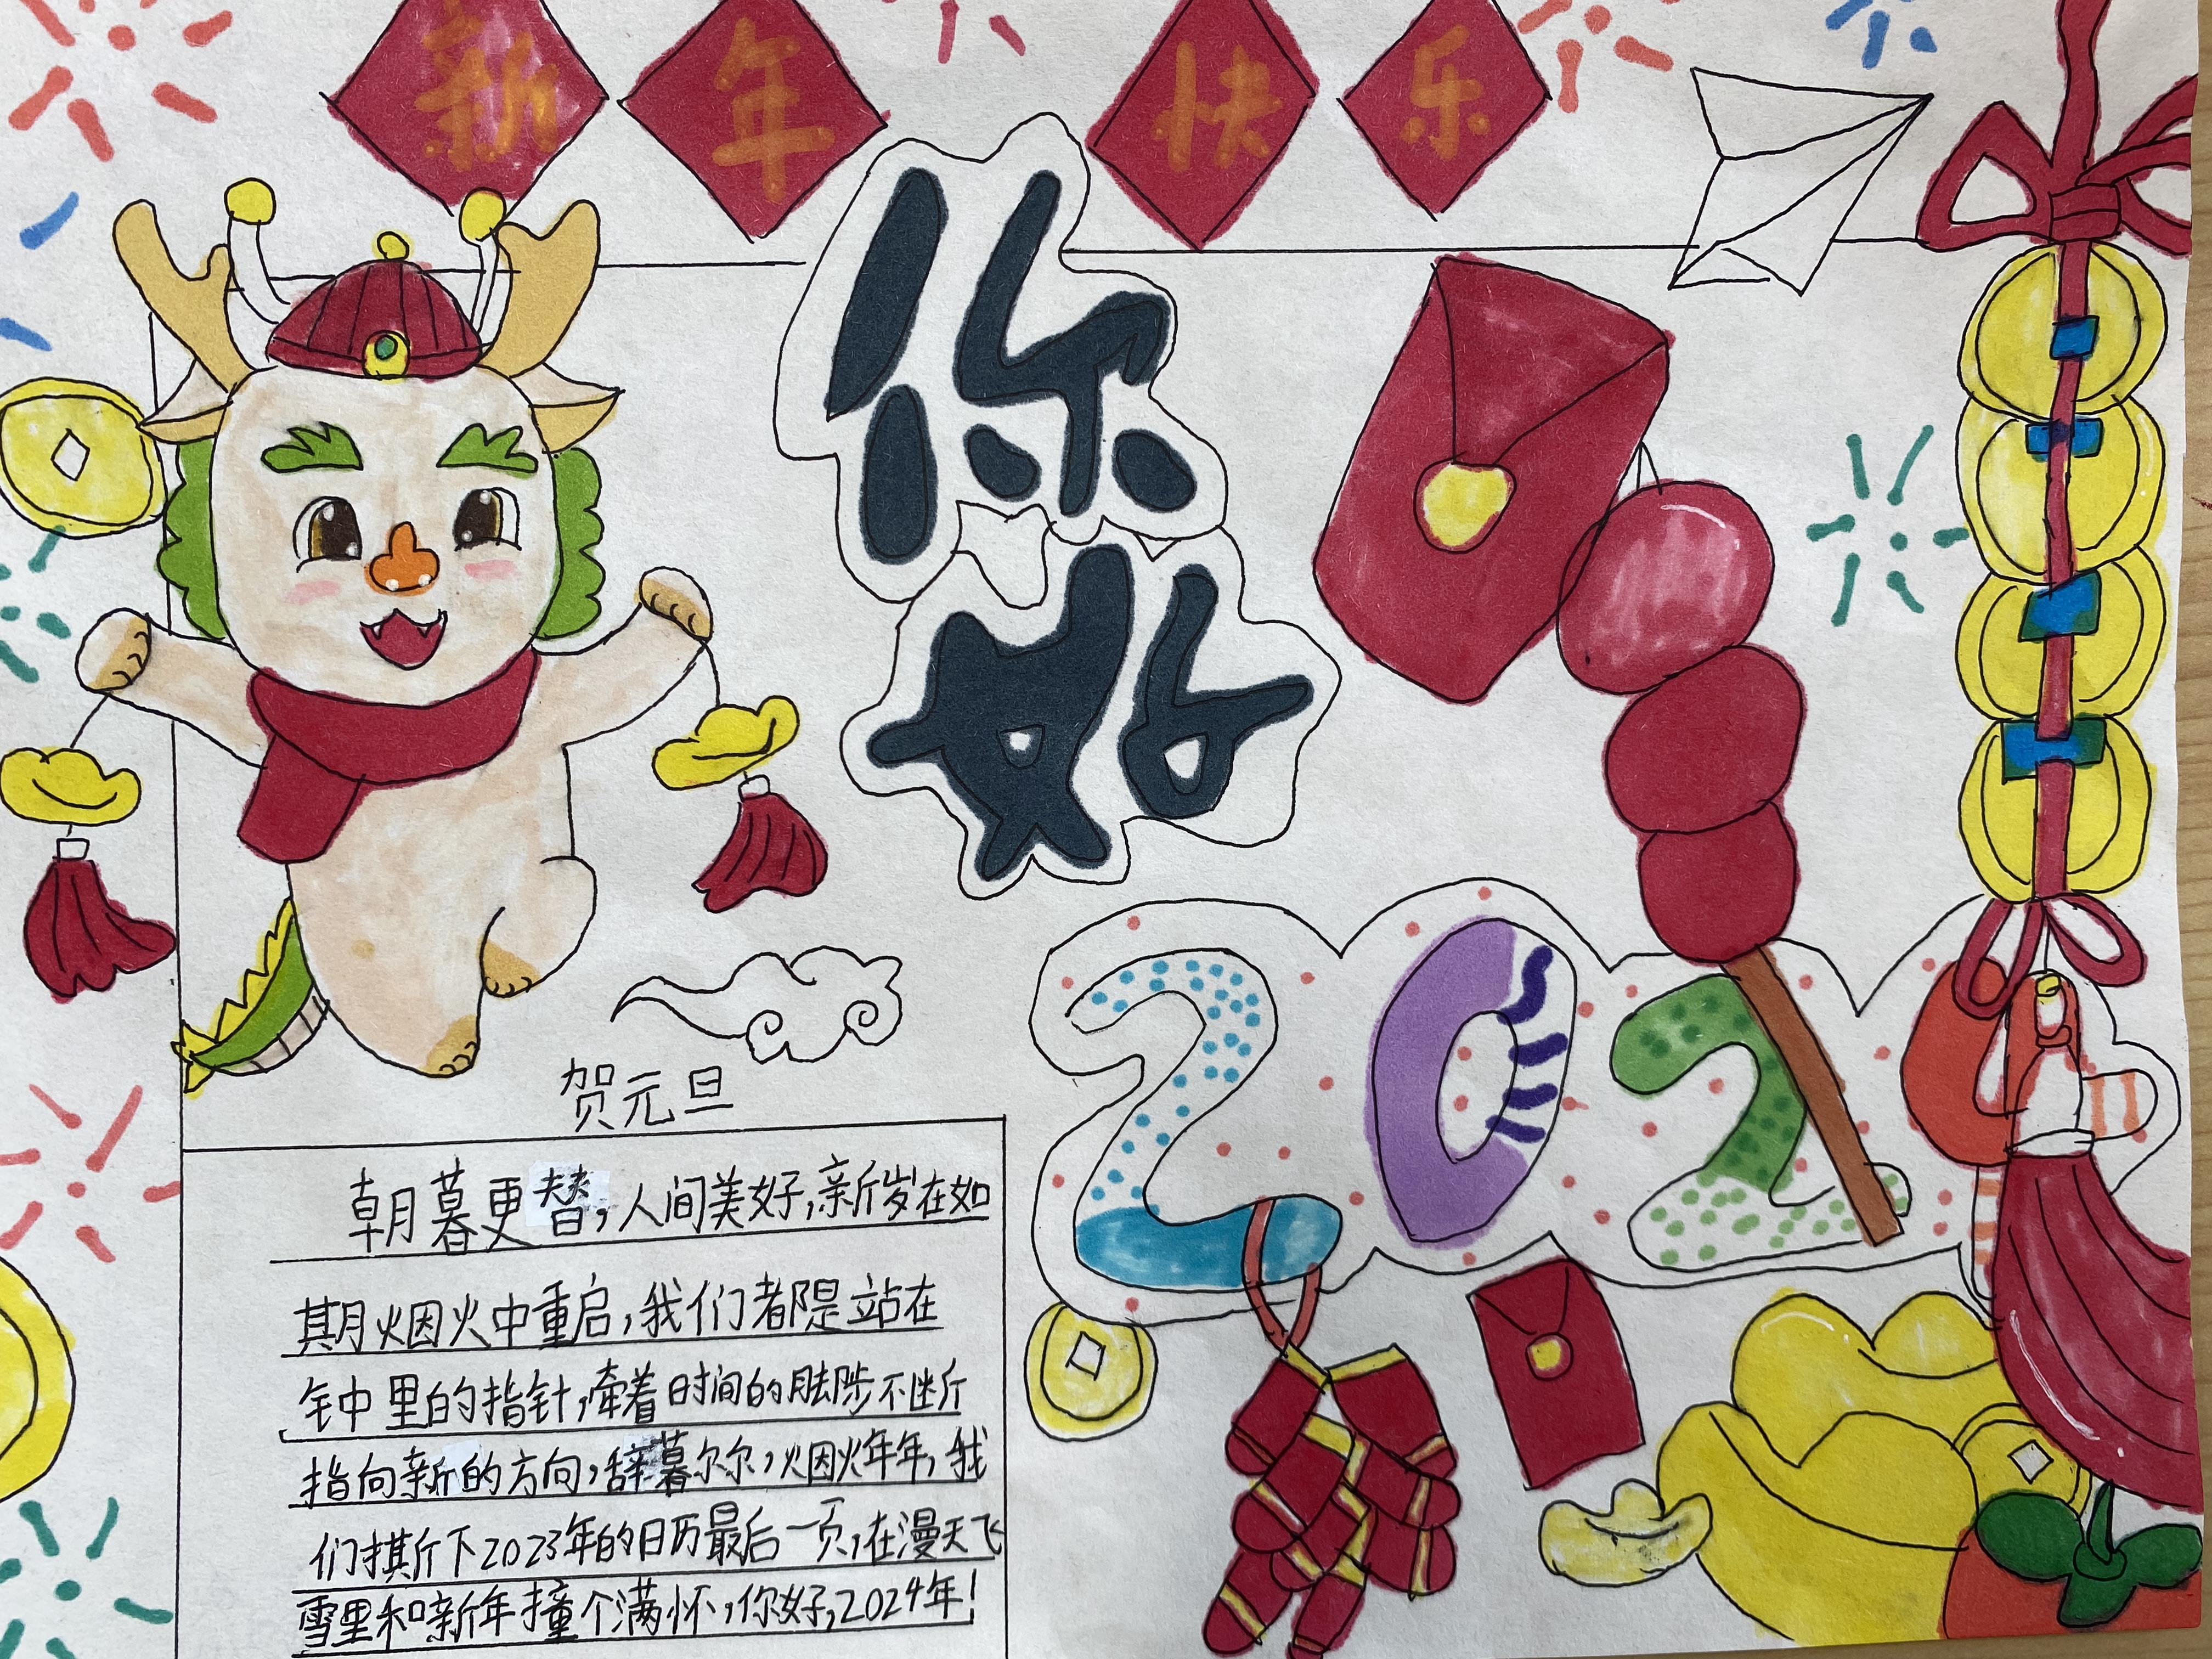 新年快乐
你好
202
贺元旦
朝暮更替,人间美好,新岁在如
期烟火中重启,我们都是站在
钟里的指针,牵着时间的脚步不断
指向新的方向,辞暮尔尔,烟火年年,我
们撕下2023年的日历最后一页,在漫天飞
雪里和新年撞个满怀,你好,2024年!